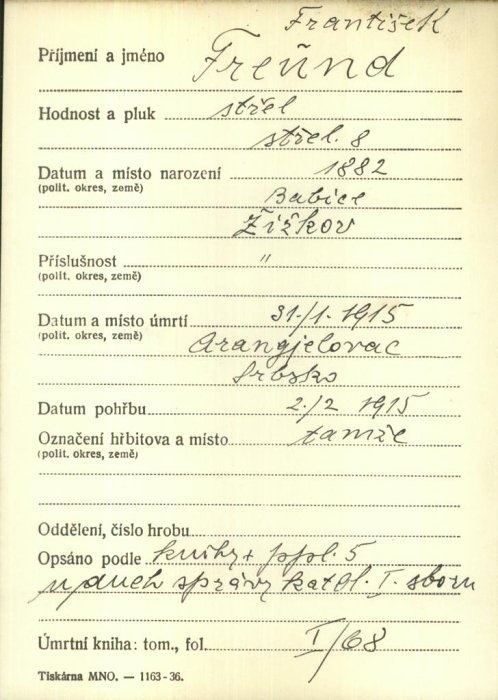 František
Příjmení a jméno Freünd
Hodnost a pluk střel
střel. 8
Datum a místo narození 1882
(polit. okres, země)
Babice
Žižkov
Příslušnost "
(polit. okres, země)
Datum a místo úmrtí 31./1. 1915
(polit. okres, země)
Arangjelovac
Srbsko
Datum pohřbu 2./2 1915
Označení hřbitova a místo tamže
(polit. okres, země)
Oddělení, číslo hrobu
Opsáno podle knihy + ppl. 5
duch správy katol. I. sboru
Úmrtní kniha: tom., fol. I/68
Tiskárna MNO. — 1163-36.